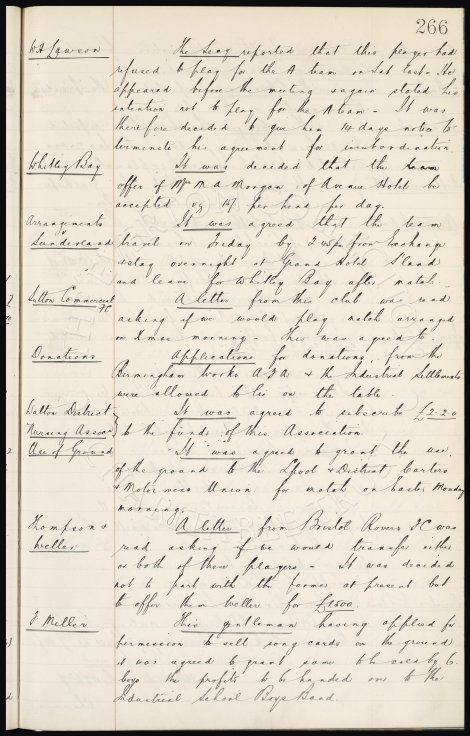 266
W A Lawson The Secy reported that this player had
refused to play for the A team on Sat last - He
appeared before the meeting & again stated his
intention not to play for the A team - It was
therefore decided to give him 14 days notice to
terminate his agreement for insubordination
Whitley Bay It was decided that the
offer of Mr M. A Morgan, of Avenue Hotel be
accepted vz 14/- per head per day.
Arrangements It was agreed that the team
Sunderland travel on Friday by 2.45pm from Exchange
& stay overnight at Grand Hotel S'land
and leave for Whitley Bay after match.
Sutton Commercial FC A letter from this club was read
asking if we would play match arranged
on Xmas morning - This was agreed to.
Donations Applications for donations, from the
Birmingham Works A F A & the Industrial Settlements
were allowed to lie on the table.
Walton District It was agreed to subscribe £2-2-0
Nursing Assocn to the funds of this Association.
Use of Ground It was agreed to grant the use
of the ground to the Lpool & District Carters
& Motormens Union for match on Easter Monday
morning.
Thompson & A letter from Bristol Rovers FC was
Weller read asking if we would transfer either
or both of these players - It was decided
not to part with the former at present but
to offer them Weller for £1500.
J Miller This gentleman having applied for
permission to sell song cards on the ground
it was agreed to grant same to be sold by 6.
boys the profits to be handed over to the
Industrial School Boys Band.